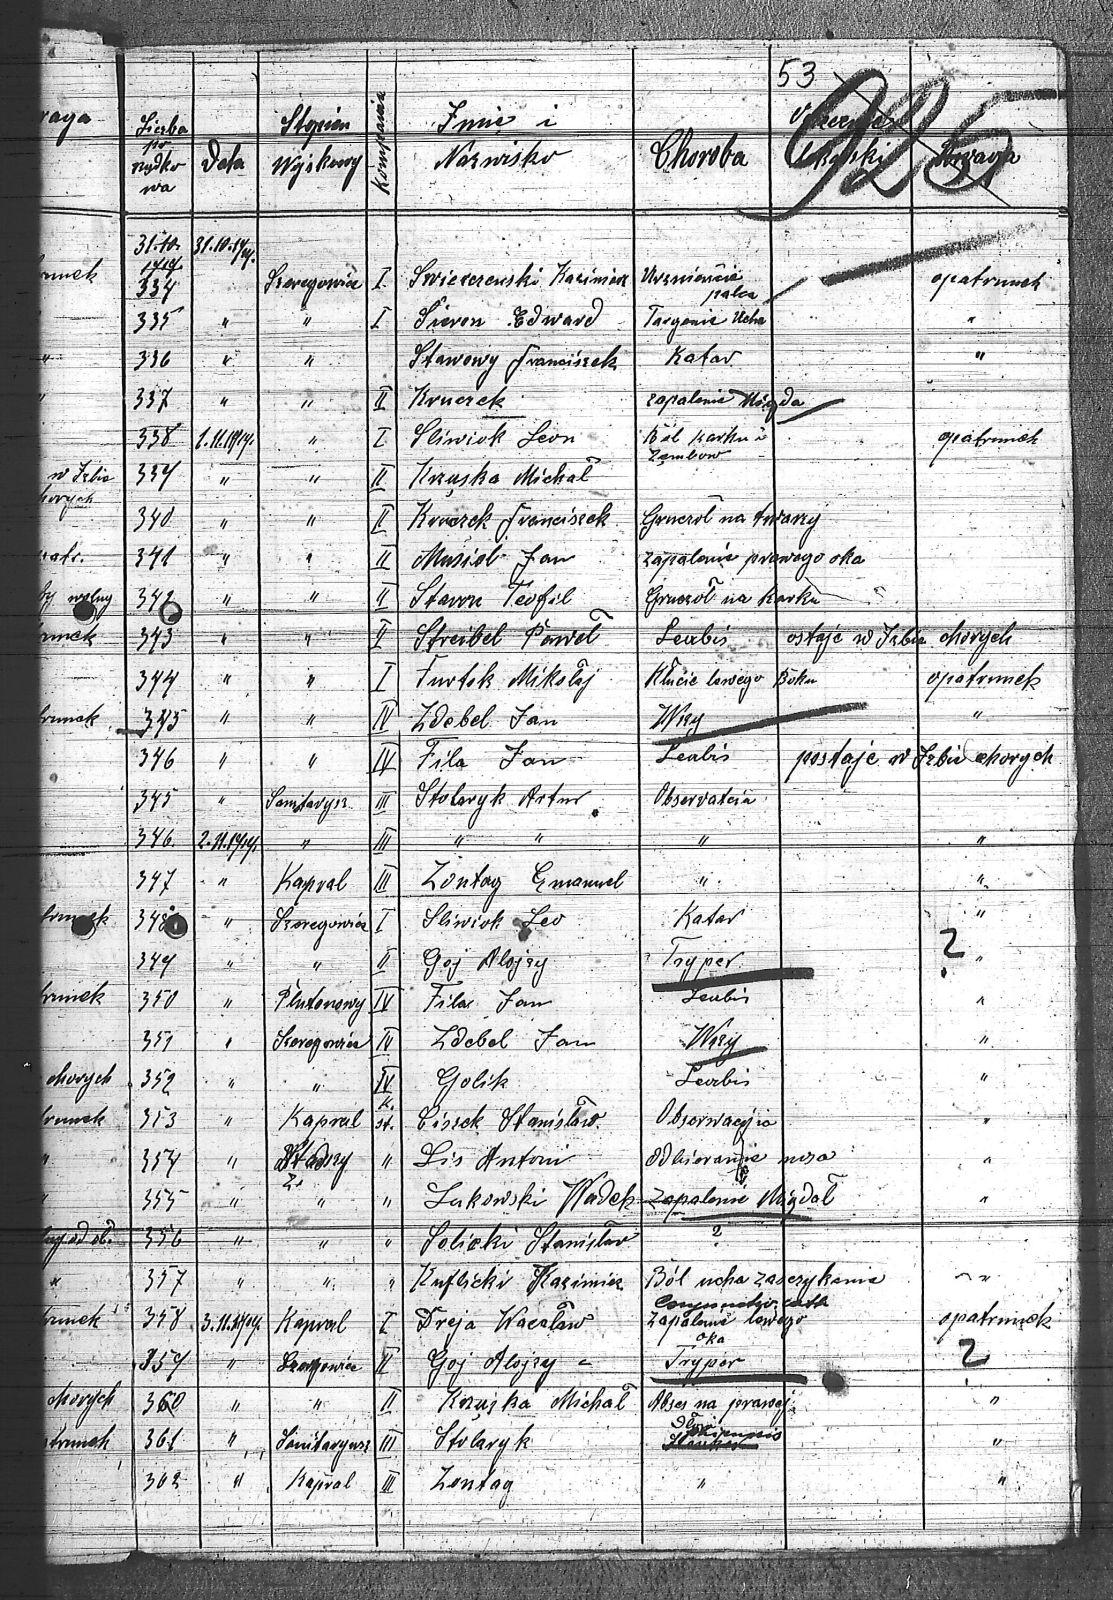 53
925
raga Liczba po rządko wa Data Stopień Wojskowy Kompania Imie i Nazwisko Choroba Uwaga
31.10. 1919. 31.10.1919.
334 Szeregowiec I Swierczewski Kazimierz palca opatrunek
335 " " I Sieron Edward Targanie Ucha "
336 " " Stawowy Franciszek Katar "
337 " " II Kruczek zapalenie Migda
338 1.11.1919. " I Sliwiok Leon Ból Karku i opatrunek
Zembow
w Izbie 339 " " II Krzyska Michał
chorych
340 " " II Kruczek Franciszek Gruczoł na twarzy
341 " " II Musiol Jan zapalenie prawego oka
wolny 342 " " II Stawon Teofil Gruczoł na Karku
343 " " II Streibel Paweł Scabis ostaje w Izbie chorych
344 " " I Furtok Mikołaj Kłucie lewego Boku opatrunek
345 " " IV Zdebel Jan Wszy "
346 " " IV Fila Jan Scabis postaje w Izbie chorych
345 " Sanitarjusz III Stolaryk Artur Observatcia
346. 2.11.1919. " III " " " "
347 " Kapral III Zontag Emanuel " "
348 " Szeregowiec I Sliwiok Leo Katar "
349 " " II Goj Alojzy Tryper ? "
350 " Plutonowy IV Fila Jan Scabis "
351 " Szeregowiec IV Zdebel Jan Wszy "
chorych 352 " " IV Golik Scabis "
353 " Kapral K. st. Cissek Stanisław Obserwacjia "
" 354 " " Lis Antoni Odbieranie nosa "
" 355 " " " Lukowski Wadek Zapalenie Migdał "
356 " " " Solicki Stanislaw ?
" 357 " " " Kuflicki Kazimierz Ból ucha zasczykania "
358 3.11.1919. Kapral I Dreja Wacław zapalenie lewego opatrunek
oka
359 " Szeregowiec II Goj Alojzy Tryper ?
chorych 360 " " II Krzyska Michał Abses na prawej "
361 " Sanitarjusz III Stolaryk "
362 " Kapral III Zontag " "